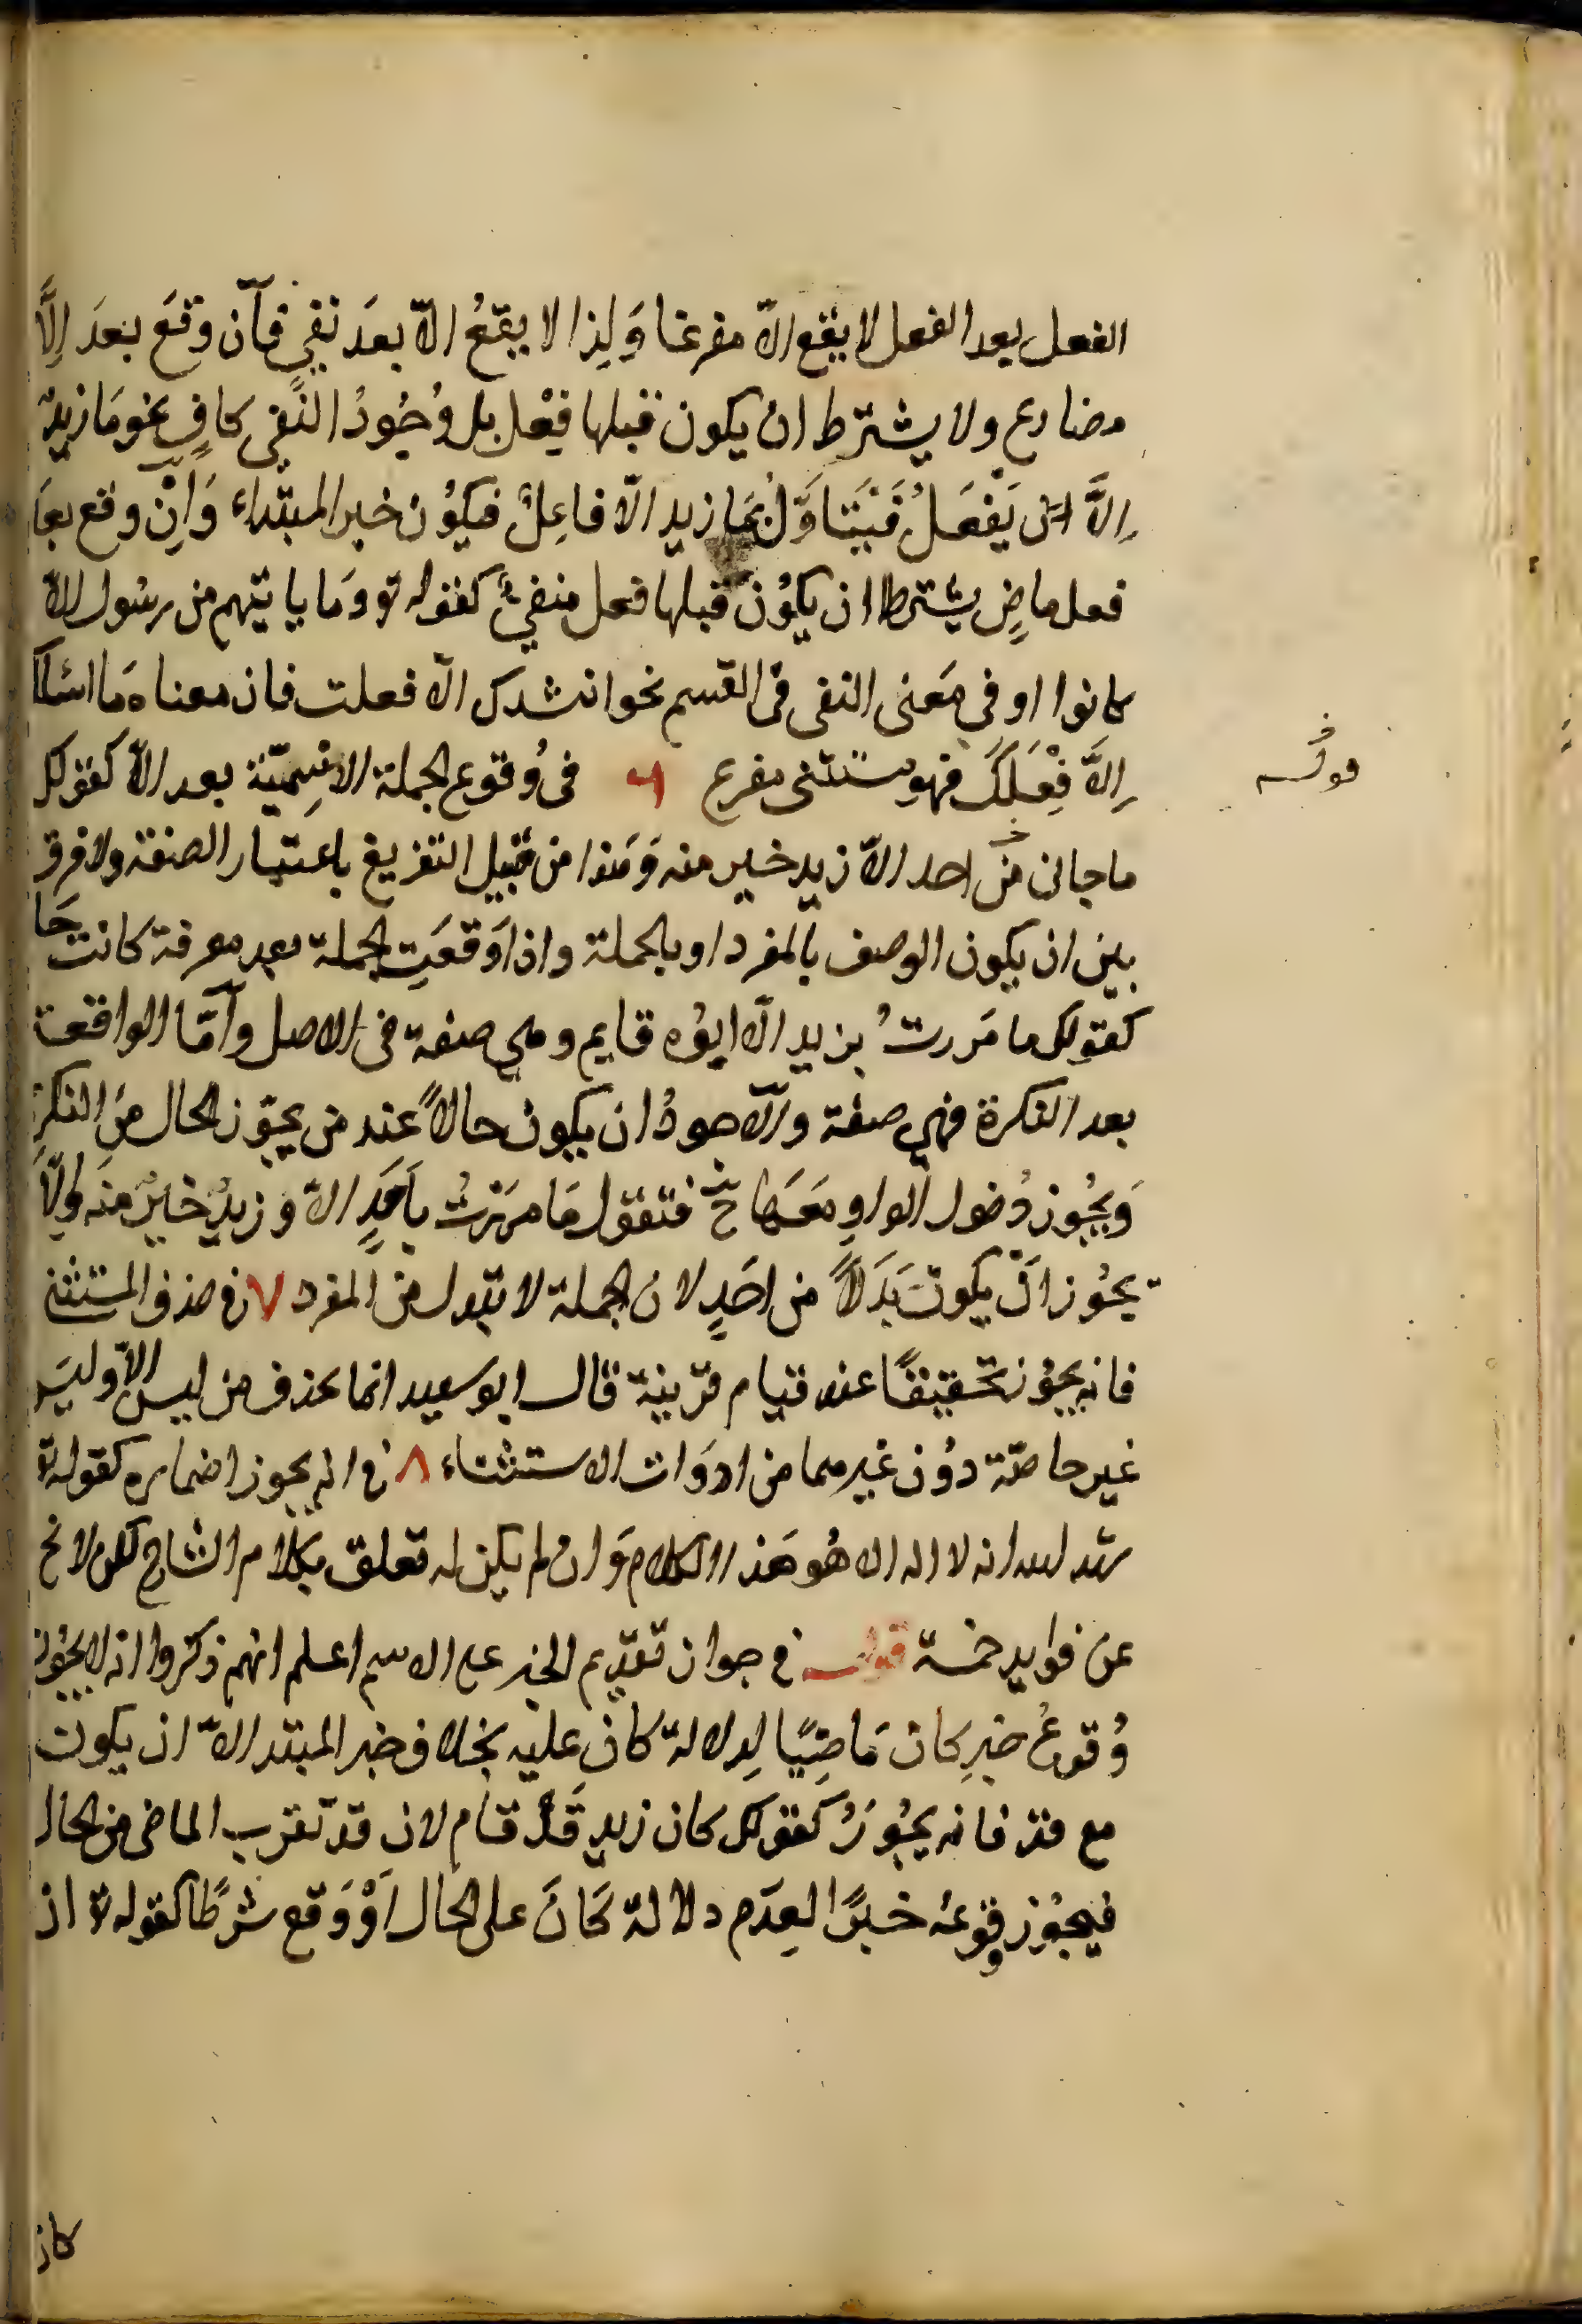 الفعل بعد الفعل لا يقع الّا مفرغا وَلِذا لا يقعُ الّا بعدَ نفيٍ فآن وقعَ بعدَ اِلَّا
مضارع ولا يشترط ان يكون قبلها فِعْل بل وُجُودُ النَّفي كافٍ نحو مَا زيدٌ
اِلَّا يَفْعَلُ فَيَتَاوَّلُ بمَا زيد الّا فاعِلٌ فيكوُن خبر المبتداء وَاِنْ وقع بعدَ
فعل ماضٍ يشترط ان يكوُنَ قبلها فعل منفيٌّ كقوله تع وَما ياتيهم من رسُول الّا
كانوا او في مَعنى النفى فى القسم نحو انشدك الّا فعلت فان معناه مَا اسئلك
اِلَّا فِعْلَكَ فهو مستثنى مفرع ٦ فى وُقوع الجملة الاِسْمِيّة بعد الّا كقولك
قوله
ما جانى من احد الّا زيد خير منه وَهَذا من قبيل التفريغ باعتبار الصفة ولا فرق
بين ان يكون الوصف بالمفرد او بالجملة واذا وَقعَتِ الجملة بعد معرفة كانت حَا
كقولك ما مَررتُ بزيد الّا ابوُه قايم وهي صفة فى الاصل وَأمَّا الواقعة
بعد النكرة فهي صفة والّا جودُ ان يكون حالاً عند من يجوّز الحال مِنَ النكرة
وَيجُوز دُخول الواوِ مَعَهَا ح فتقول مَا مرَرْتُ بأحَدٍ الّا وَ زيدٌ خيرٌ منه وَلَا
يجُوز اَن يكونَ بَدَلاً من احَدٍ لان الجملة لا تبدل من المفرد ٧ فى حذف المستثنى
فانه يجوُز تخفيفًا عند قيام قرينة قال ابو سعيد انما يحذف من ليس الّا وليسَ
غير خاصّة دوُن غيرهما من ادوَات الاستثناء ٨ فى انه يجوز اضماره كقوله تع
شهد الله انه لا اله الا هُو هَذا الكلام وَان لم يكن له تعلق بكلام الشارح لكن لا يخ
عن فوايد خمسة قوله فى جواز تقديم الخبر على الاسم اعلم انهم ذكروا انه لا يجُوز
وُقوعُ خبرِ كان مَاضِيًا لِدلالة كان عليه بخلاف خبر المبتدا الّا ان يكون
مع قد فانه يجُوزُ كقولك كان زيد قَدْ قام لان قد تقرب الماضى من الحال
فيجُوز وقوُعُه خبرًا لِعدَم دلالة كَانَ على الحال اَوْ وَقع شرطًا كقوله تع ان
كان